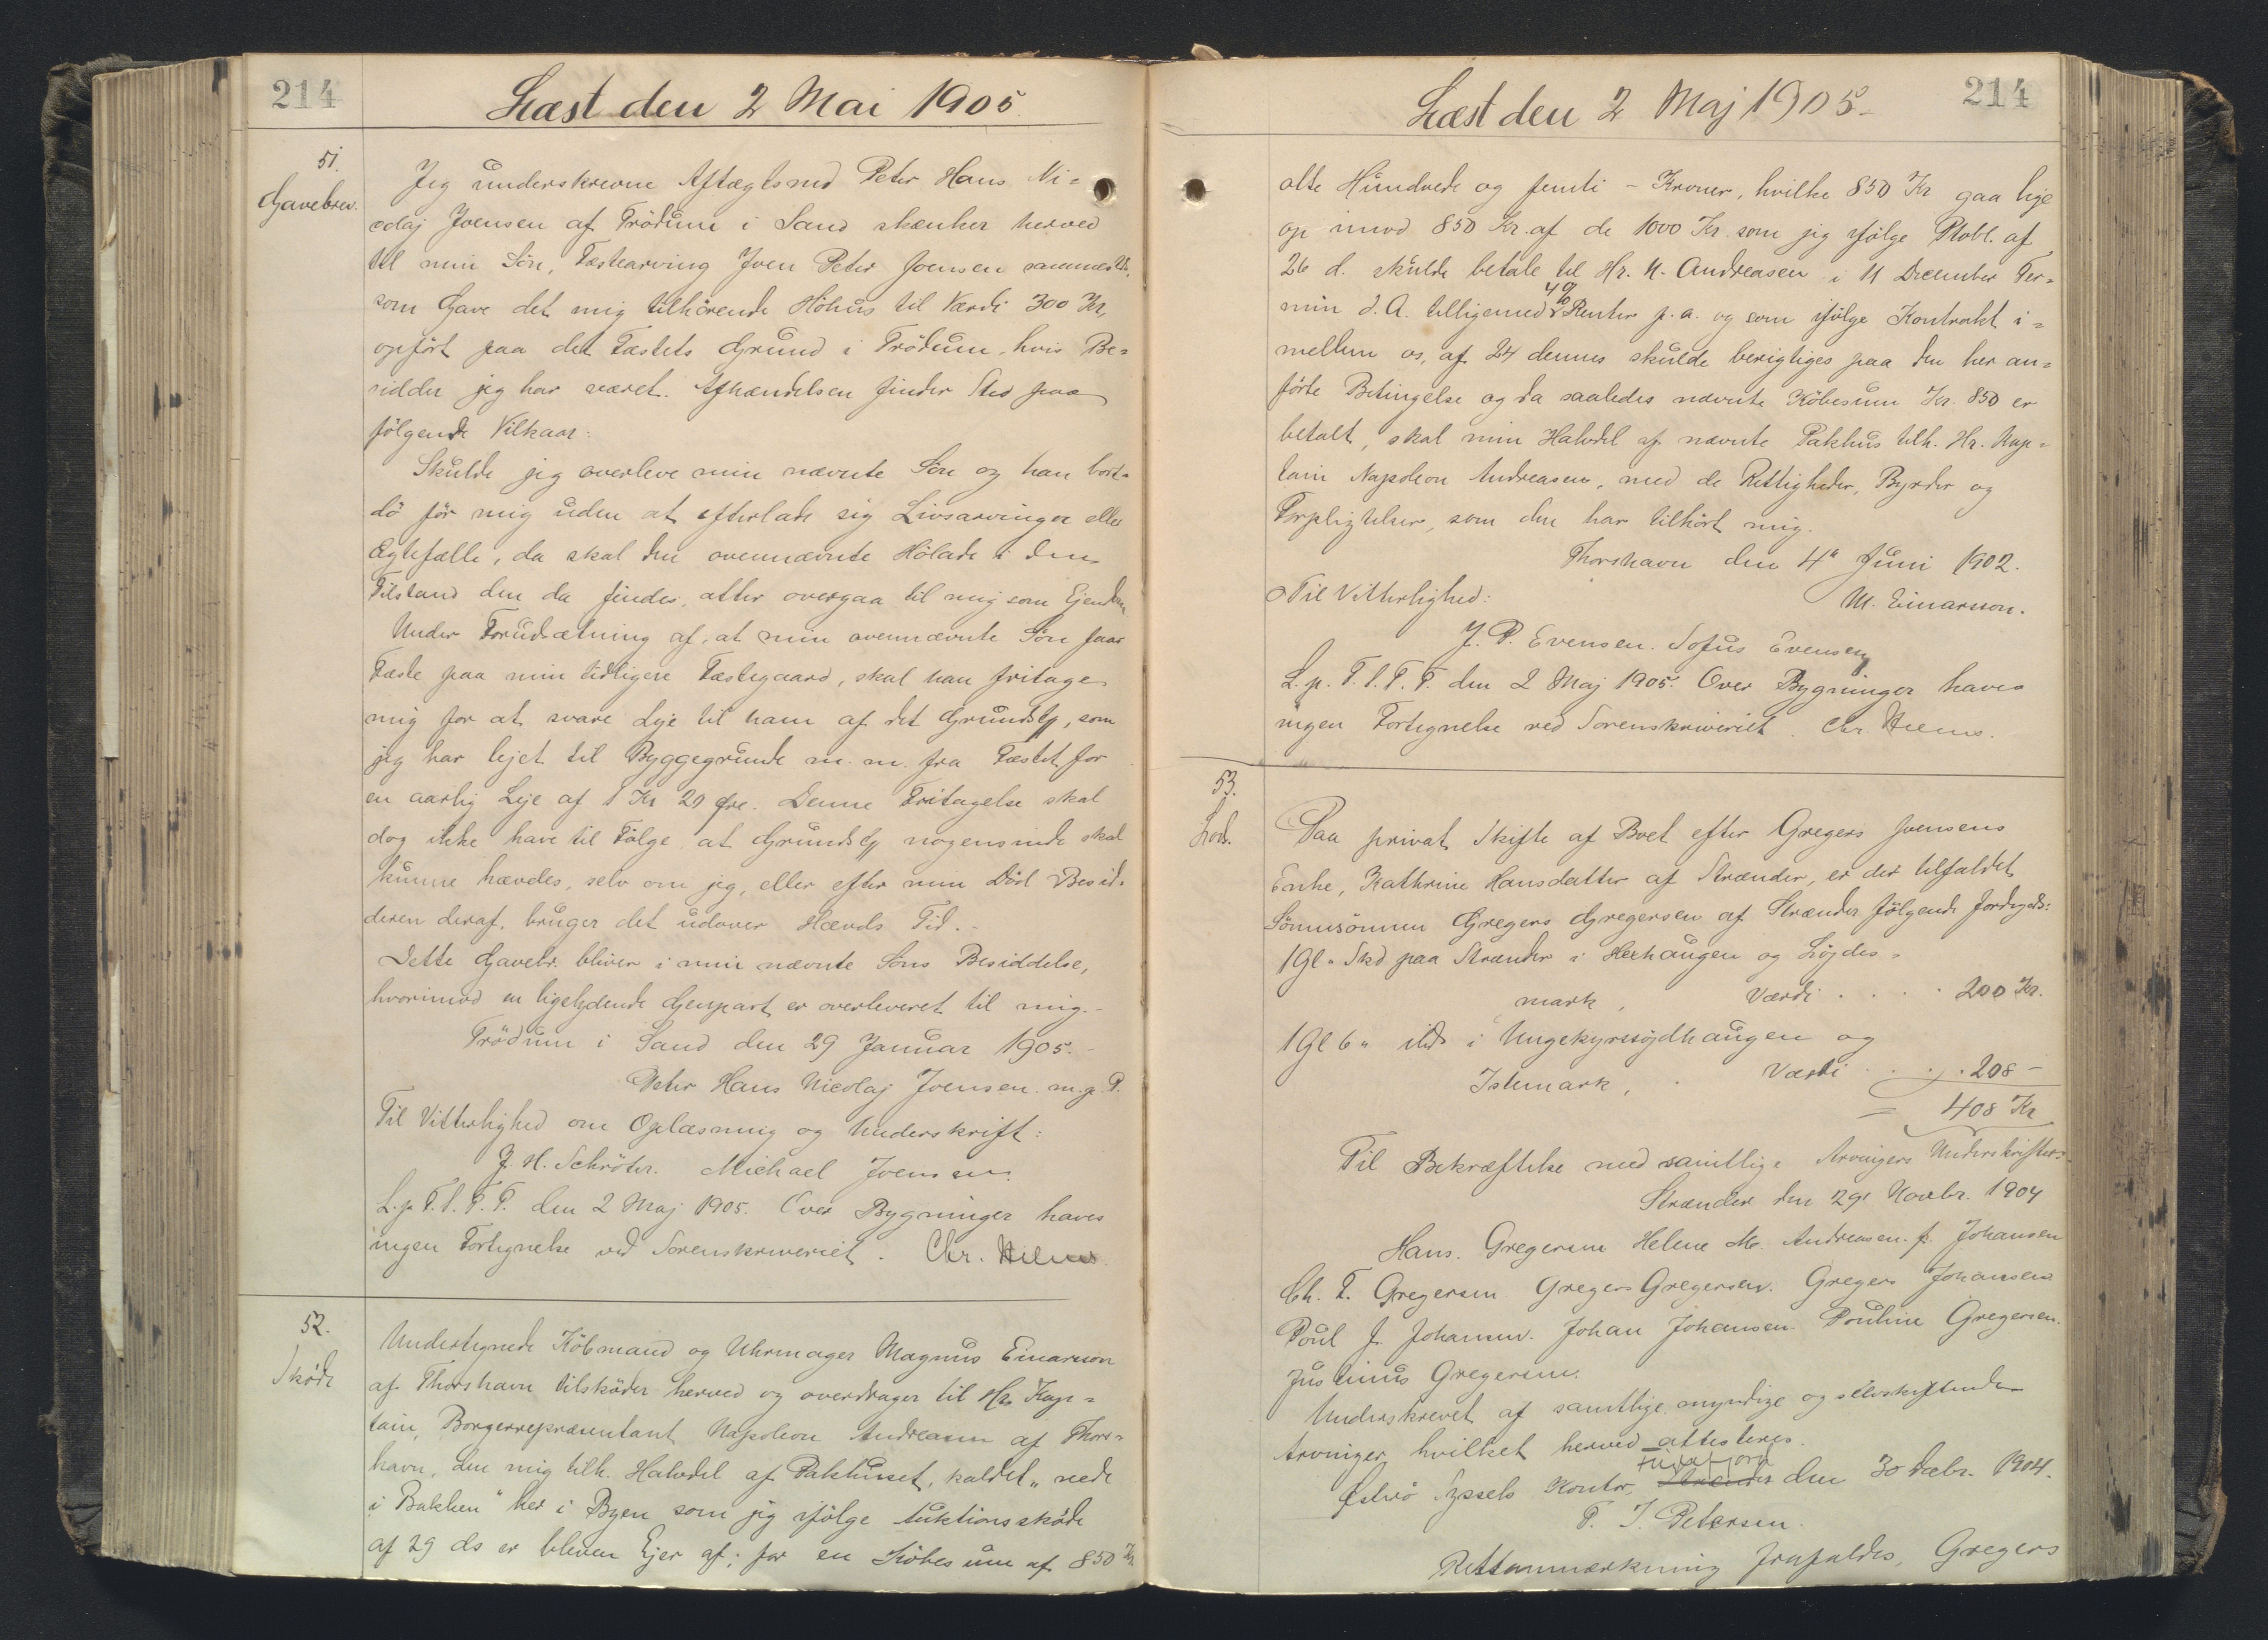 214
Læst den 2 Mai 1905.
51.
Gavebrev.
Jeg underskrevne Aftægtsmd Peter Hans Ni=
colaj Joensen af Trödum i Sand skænker herved
til min Sön, Fæstearving Joen Peter Joensen sammestds.
som Gave det mig tilhörende Höhus til Værdi 300 Kr,
opfört paa det Fæstets Grund i Trödum, hvis Be=
sidder jeg har været. Afhændelsen finder Sted paa
fölgende Vilkaar:
Skulde jeg overleve min nævnte Sön og han bort=
dö för mig uden at efterlade sig Livsarvinger eller
Ægtefælle, da skal den ovennævnte Hölade i den
Tilstand den da findes, atter overgaa til mig som Ejendom
Under Forudsætning af, at min ovennævnte Sön faar
Fæste paa min tidligere Fæstegaard, skal han fritage
mig for at svare Leje til ham af det Grundst., som
jeg har lejet til Byggegrunde m. m. fra Fæstet for
en aarlig Leje af 1 Kr 20 Øre. Denne Fritagelse skal
dog ikke have til Fölge at Grundst. nogensinde skal
kunne hævdes, selv om jeg, eller efter min Död Besid=
deren deraf, bruger det udover Hævds Tid. -
Dette Gavebr. bliver i min nævnte Söns Besiddelse,
hvorimod en ligelydende Genpart er overleveret til mig. -
Trödum i Sand den 29 Januar 1905. -
Peter Hans Nicolaj Joensen. m. p. P.
Til Vitterlighed om Oplæsning og Underskrift:
J. H. Schröter. Michael Joensen.
L. p. F. l. F. T. den 2 Maj 1905. Over Bygninger haves
ingen Fortegnelse ved Sorenskriveriet. Chr.
52.
Sköde
Undertegnede Köbmand og Uhrmager Magnus Einarsson
af Thorshavn tilsköder herved og overdrager til Hr. Kap=
tain, Borgerrepræsentant Napoleon Andreasen af Thors=
havn, den mig tilh. Halvdel af Pakhuset, kaldet "nede
i Bakken" her i Byen som jeg ifölge Auktionssköde
af 29 ds er bleven Ejer af; for en Köbesum af 850 Kr.
214
Læst den 2 Maj 1905 -
otte Hundrede og femti - Kroner, hvilke 850 Kr gaa lige
op imod 850 Kr. af de 1000 Kr. som jeg ifölge Pkobl. af
26 d. skulde betale til Hr. N. Andreasen i 11 December Ter=
min d. A. tilligemed 4% Renter p. a. og som ifölge Kontrakt i=
mellem os, af 24 dennes skulde berigtiges paa den her an=
förte Betingelse og da saaledes nævnte Köbesum Kr. 850 er
betalt, skal min Halvdel af nævnte Pakhus tilh. Hr. Kap=
tain Napoleon Andreasen, med de Rettigheder, Byrder og
Forpligtelser, som den har tilhört mig.
Thorshavn den 4 Juni 1902.
M. Einarsson.
Til Vitterlighed:
J. P. Evensen. Sofus Evensen
L. p. F. l. F. T. den 2 Maj 1905. Over Bygninger haves
ingen Fortegnelse ved Sorenskriveriet. Chr.
53.
Lod.
Paa privat Skifte af Boet efter Gregers Joensens
Enke, Kathrine Hansdatter af Strænder, er der tilfaldet
Sönnesönnen Gregers Gregersen af Strænder fölgende Jordegods:
1 Gl. " Skd paa Strænder i Heehaugen og Lögdes=
mark, Værdi . . . . 200 Kr.
1 Gl 6 " i Ungekyrsöjdhaugen og
Istemark, Værdi . . . . 208 -
= 408 Kr
Til Bekræftelse med samtlige Arvingers Underskrifter:
Strænder den 29 Novbr. 1904
Hans. Gregersen Helene M. Andreasen. f. Johansen
Ch. F. Gregersen Gregers Gregersen. Gregers Johansen
Poul J. Johansen. Johan Johansen. Pouline Gregersen.
Justinus Gregersen.
Underskrevet af samtlige myndige og selvskiftende
Arvinger hvilket herved attesteres.
Østerö Syssels Kontor, Strænder den 30 Decbr. 1904.
P. J. Petersen.
Rettanmærkning frafaldes, Gregers